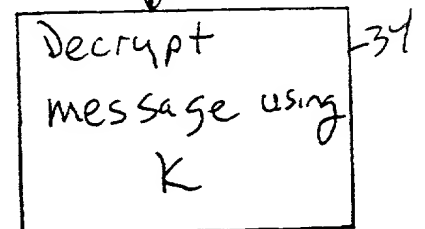 Decrypt
34
message using
K